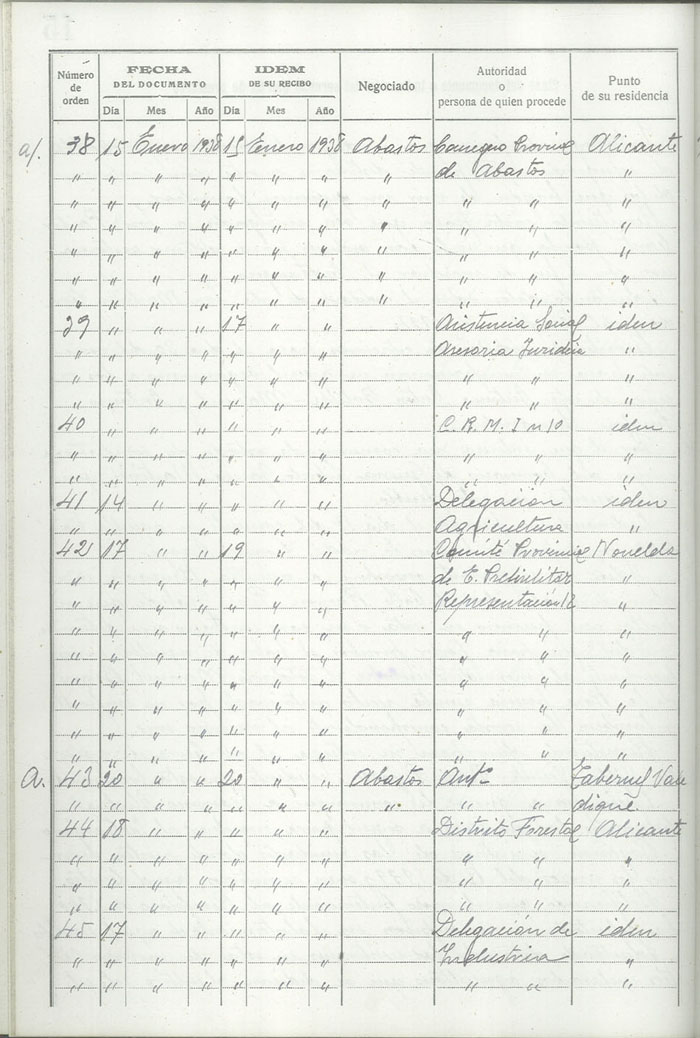 Número de orden FECHA DEL DOCUMENTO IDEM DE SU RECIBO Negociado Autoridad o persona de quien procede Punto de su residencia
Día Mes Año Día Mes Año
a/. 38 15 Enero 1938 15 Enero 1938 Abastos Consejo Provincial Alicante
" " " " " " " " de Abastos "
" " " " " " " " " " "
" " " " " " " " " " "
" " " " " " " " " " "
" " " " " " " " " " "
" " " " " " " " " " "
39 " " " 17 " " Asistencia Social iden
" " " " " " " Asesoria Juridica "
" " " " " " " " " "
" " " " " " " " " "
40 " " " " " " C. R. M. I nº 10 iden
" " " " " " " " " "
" " " " " " " " " "
41 14 " " " " " Delegación iden
" " " " " " " Agricultura "
42 17 " " 19 " " Comité Provincial Novelda
" " " " " " " de E. Premilitar "
" " " " " " " Representación "
" " " " " " " " " "
" " " " " " " " " "
" " " " " " " " " "
" " " " " " " " " "
" " " " " " " " " "
" " " " " " " " " "
a. 43 20 " " 20 " " Abastos Antº
" " " " " " " " " " digne
44 18 " " " " " Distrito Forestal Alicante
" " " " " " " " " "
" " " " " " " " " "
" " " " " " " " " "
45 17 " " " " " Delegación de iden
" " " " " " " Industria "
" " " " " " " " " "